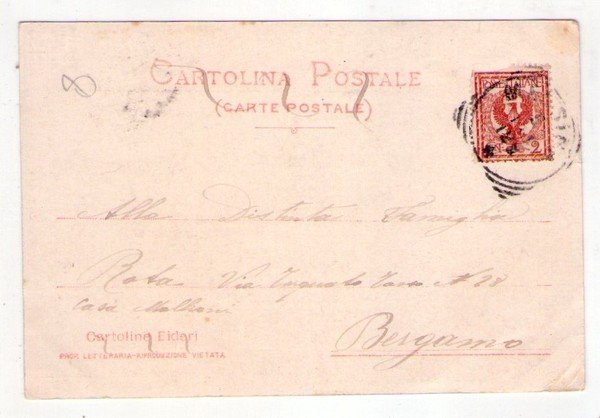 8
CARTOLINA POSTALE
(CARTE POSTALE)
2
Alla Distinta Famiglia
Rota Via Torquato Tasso N 28
Casa
Bergamo
Cartoline Eideri
PROP. LETTERARIA-RIPRODUZIONE VIETATA